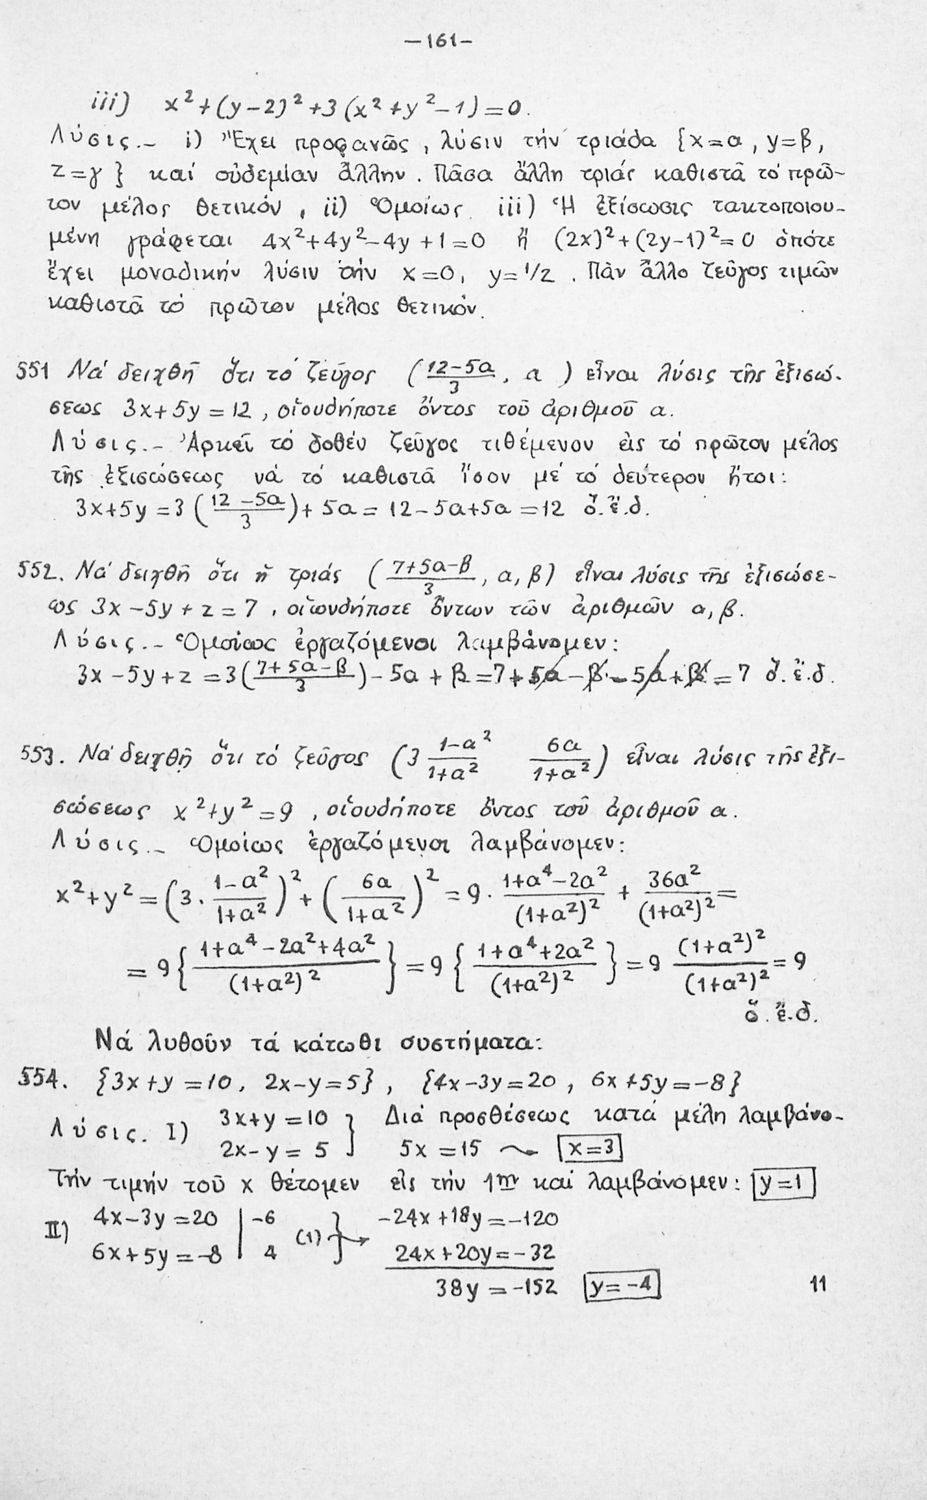 —161—
iii) x²+(y−2)²+3(x²+y²−1)=0.
Λύσις.- i) Ἔχει προφανῶς, λύσιν τήν τριάδα {x=α, y=β,
z=γ} καί οὐδεμίαν ἄλλην. Πᾶσα ἄλλη τριάς καθιστᾶ τό πρῶ-
τον μέλος θετικόν, ii) Ὁμοίως iii) Ἡ ἐξίσωσις τακτοποιου-
μένη γράφεται 4x²+4y²−4y+1=0 ἤ (2x)²+(2y−1)²=0 ὁπότε
ἔχει μοναδικήν λύσιν τήν x=0, y=1/2. Πᾶν ἄλλο ζεῦγος τιμῶν
καθιστᾶ τό πρῶτον μέλος θετικόν.
551 Νά δειχθῆ ὅτι τό ζεῦγος ((12−5α)/3, α) εἶναι λύσις τῆς ἐξισώ-
σεως 3x+5y=12, οἱουδήποτε ὄντος τοῦ ἀριθμοῦ α.
Λύσις.- Ἀρκεῖ τό δοθέν ζεῦγος τιθέμενον εἰς τό πρῶτον μέλος
τῆς ἐξισώσεως νά τό καθιστᾶ ἴσον μέ τό δεύτερον ἤτοι:
3x+5y=3((12−5α)/3)+5α=12−5α+5α=12 ὅ.ἔ.δ.
552. Νά δειχθῆ ὅτι ἡ τριάς ((7+5α−β)/3, α, β) εἶναι λύσις τῆς ἐξισώσε-
ως 3x−5y+z=7, οἱωνδήποτε ὄντων τῶν ἀριθμῶν α, β.
Λύσις.- Ὁμοίως ἐργαζόμενοι λαμβάνομεν:
3x−5y+z=3((7+5α−β)/3)−5α+β=7+5α−β−5α+β=7 ὅ.ἔ.δ.
553. Νά δειχθῆ ὅτι τό ζεῦγος (3 (1−α²)/(1+α²) 6α/(1+α²)) εἶναι λύσις τῆς ἐξι-
σώσεως x²+y²=9, οἱουδήποτε ὄντος τοῦ ἀριθμοῦ α.
Λύσις.- Ὁμοίως ἐργαζόμενοι λαμβάνομεν:
x²+y²=(3·(1−α²)/(1+α²))²+(6α/(1+α²))²=9·(1+α⁴−2α²)/(1+α²)²+36α²/(1+α²)²=
=9{(1+α⁴−2α²+4α²)/(1+α²)²}=9{(1+α⁴+2α²)/(1+α²)²}=9 (1+α²)²/(1+α²)²=9
ὅ.ἔ.δ.
Νά λυθοῦν τά κάτωθι συστήματα:
554. {3x+y=10, 2x−y=5}, {4x−3y=20, 6x+5y=−8}
Λύσις. I) 3x+y=10 } Διά προσθέσεως κατά μέλη λαμβάνο-
2x−y=5 } 5x=15 ⤳ x=3
Τήν τιμήν τοῦ x θέτομεν εἰς τήν 1ην καί λαμβάνομεν: y=1
II) 4x−3y=20 | −6 (1) } → −24x+18y=−120
6x+5y=−8 | 4 24x+20y=−32
38y=−152 y=−4
11